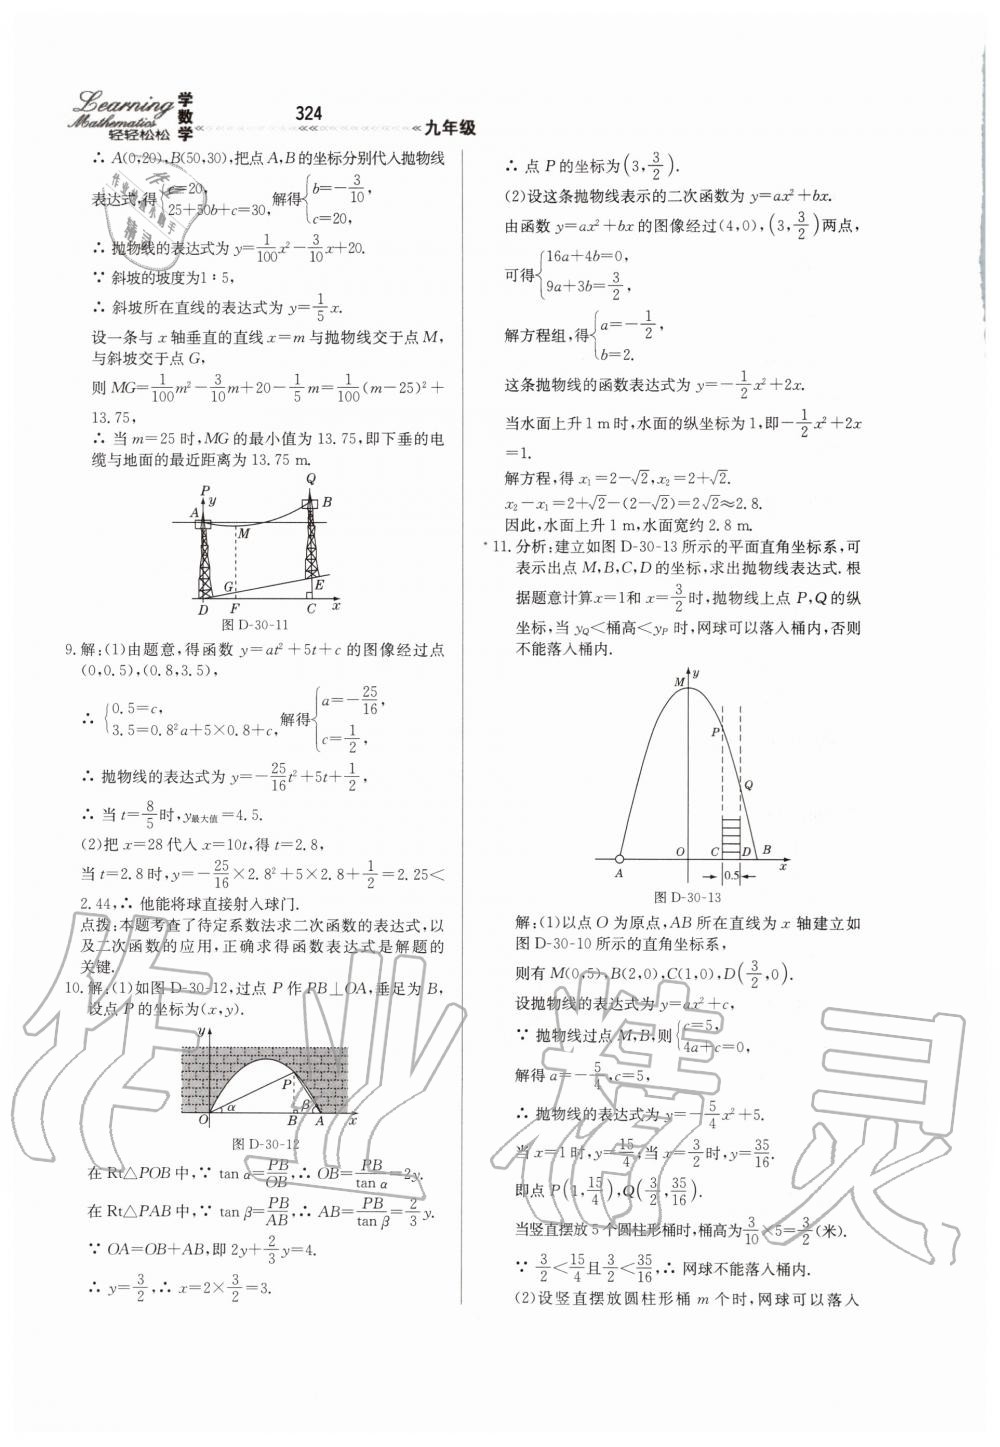 Learning
Mathematics
轻轻松松
学数学
324
九年级
∴ A(0,20),B(50,30),把点 A,B 的坐标分别代入抛物线
表达式,得{c=20, 25+50b+c=30, 解得{b=-3/10, c=20,
∴ 抛物线的表达式为 y=1/100x²-3/10x+20.
∵ 斜坡的坡度为1∶5,
∴ 斜坡所在直线的表达式为 y=1/5x.
设一条与 x 轴垂直的直线 x=m 与抛物线交于点 M,
与斜坡交于点 G,
则 MG=1/100m²-3/10m+20-1/5m=1/100(m-25)²+
13.75,
∴ 当 m=25 时,MG 的最小值为 13.75,即下垂的电
缆与地面的最近距离为 13.75 m.
P y Q A B M G E D F C x
图 D-30-11
9. 解:(1)由题意,得函数 y=at²+5t+c 的图像经过点
(0,0.5),(0.8,3.5),
∴ {0.5=c, 3.5=0.8²a+5×0.8+c, 解得{a=-25/16, c=1/2,
∴ 抛物线的表达式为 y=-25/16t²+5t+1/2,
∴ 当 t=8/5时,y最大值=4.5.
(2)把 x=28 代入 x=10t,得 t=2.8,
当 t=2.8 时,y=-25/16×2.8²+5×2.8+1/2=2.25<
2.44,∴ 他能将球直接射入球门.
点拨:本题考查了待定系数法求二次函数的表达式,以
及二次函数的应用,正确求得函数表达式是解题的
关键.
10. 解:(1)如图 D-30-12,过点 P 作 PB⊥OA,垂足为 B,
设点 P 的坐标为(x,y).
y P α β O B A x
图 D-30-12
在 Rt△POB 中,∵ tan α=PB/OB,∴ OB=PB/tan α=2y.
在 Rt△PAB 中,∵ tan β=PB/AB,∴ AB=PB/tan β=2/3y.
∵ OA=OB+AB,即 2y+2/3y=4.
∴ y=3/2,∴ x=2×3/2=3.
∴ 点 P 的坐标为(3,3/2).
(2)设这条抛物线表示的二次函数为 y=ax²+bx.
由函数 y=ax²+bx 的图像经过(4,0),(3,3/2)两点,
可得{16a+4b=0, 9a+3b=3/2,
解方程组,得{a=-1/2, b=2.
这条抛物线的函数表达式为 y=-1/2x²+2x.
当水面上升 1 m 时,水面的纵坐标为 1,即-1/2x²+2x
=1.
解方程,得 x₁=2-√2,x₂=2+√2.
x₂-x₁=2+√2-(2-√2)=2√2≈2.8.
因此,水面上升 1 m,水面宽约 2.8 m.
*11. 分析:建立如图 D-30-13 所示的平面直角坐标系,可
表示出点 M,B,C,D 的坐标,求出抛物线表达式. 根
据题意计算x=1和 x=3/2时,抛物线上点 P,Q的纵
坐标,当 yQ<桶高<yP 时,网球可以落入桶内,否则
不能落入桶内.
M y P Q O C D B x A 0.5
图 D-30-13
解:(1)以点 O 为原点,AB 所在直线为 x 轴建立如
图 D-30-10 所示的直角坐标系,
则有 M(0,5),B(2,0),C(1,0),D(3/2,0).
设抛物线的表达式为 y=ax²+c,
∵ 抛物线过点 M,B,则{c=5, 4a+c=0,
解得 a=-5/4,c=5,
∴ 抛物线的表达式为 y=-5/4x²+5.
当 x=1 时,y=15/4;当 x=3/2时,y=35/16.
即点 P(1,15/4),Q(3/2,35/16).
当竖直摆放 5 个圆柱形桶时,桶高为3/10×5=3/2(米).
∵ 3/2<15/4且3/2<35/16,∴ 网球不能落入桶内.
(2)设竖直摆放圆柱形桶 m 个时,网球可以落入
作业精灵